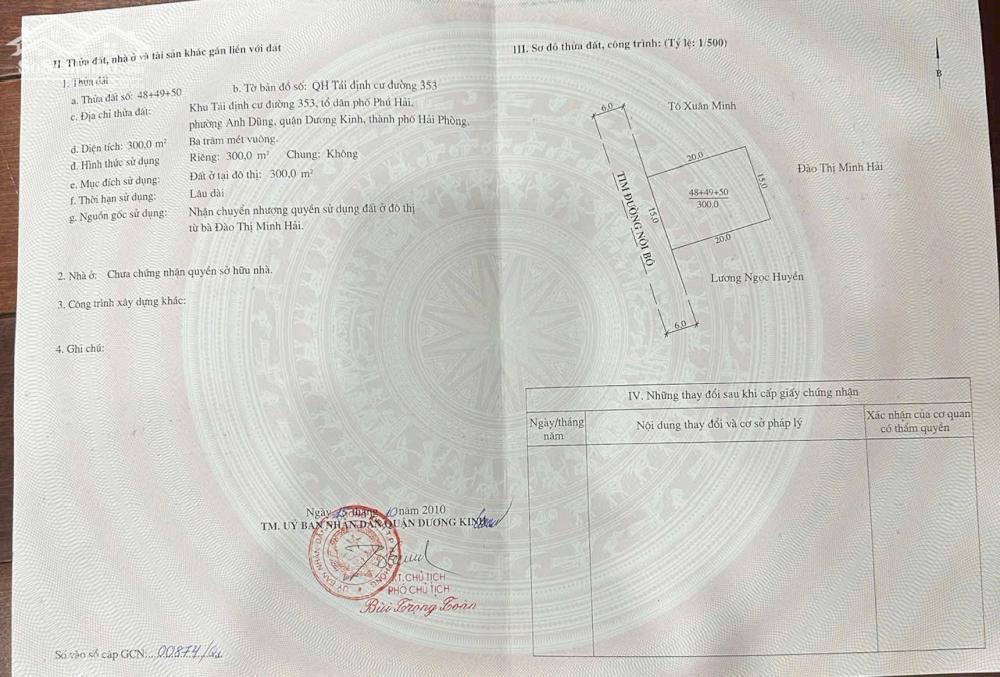 II. Thửa đất, nhà ở và tài sản khác gắn liền với đất
1. Thửa đất
a. Thửa đất số: 48+49+50
b. Tờ bản đồ số: QH Tái định cư đường 353
c. Địa chỉ thửa đất:
Khu Tái định cư đường 353, tổ dân phố Phú Hải,
phường Anh Dũng, quận Dương Kinh, thành phố Hải Phòng.
d. Diện tích: 300,0 m²
Ba trăm mét vuông.
đ. Hình thức sử dụng
Riêng: 300,0 m² Chung: Không
e. Mục đích sử dụng:
Đất ở tại đô thị: 300,0 m²
f. Thời hạn sử dụng:
Lâu dài
g. Nguồn gốc sử dụng:
Nhận chuyển nhượng quyền sử dụng đất ở đô thị
từ bà Đào Thị Minh Hải.
2. Nhà ở: Chưa chứng nhận quyền sở hữu nhà.
3. Công trình xây dựng khác:
4. Ghi chú:
Ngày 15 tháng 10 năm 2010
TM. UỶ BAN NHÂN DÂN QUẬN DƯƠNG KINH
KT. CHỦ TỊCH
PHÓ CHỦ TỊCH
Bùi Trọng Toàn
Số vào sổ cấp GCN: 00874/
III. Sơ đồ thửa đất, công trình: (Tỷ lệ: 1/500)
B
6,0
Tô Xuân Minh
20,0
Đào Thị Minh Hải
15,0
48+49+50
300.0
15,0
TIM ĐƯỜNG NỘI BỘ
20,0
Lương Ngọc Huyền
6,0
IV. Những thay đổi sau khi cấp giấy chứng nhận
Ngày/tháng
năm
Nội dung thay đổi và cơ sở pháp lý
Xác nhận của cơ quan
có thẩm quyền